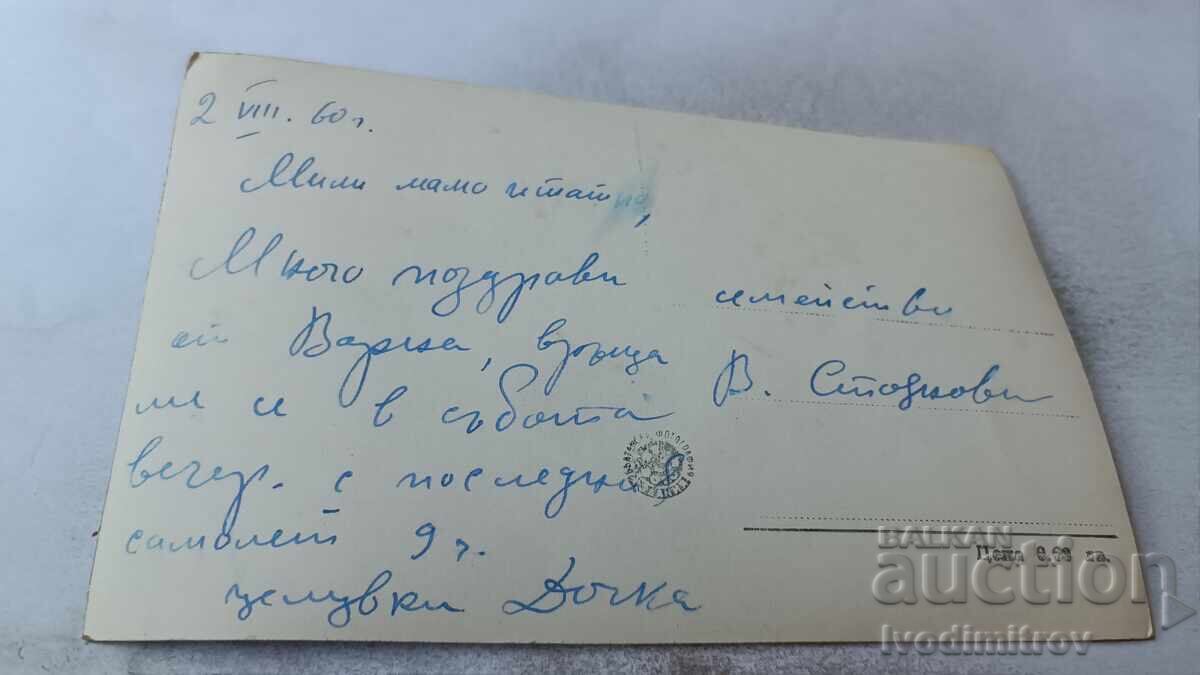 2 VIII. 60 г.
Мили мамо и татко,
Много поздрави
от Варна, връща
ме се в събота
вечер. с последния
самолет 9 ч.
целувки Дочка
семейство
В. Стоянови
Цена 0,08 лв.
BALKAN
auction
Ivodimitrov